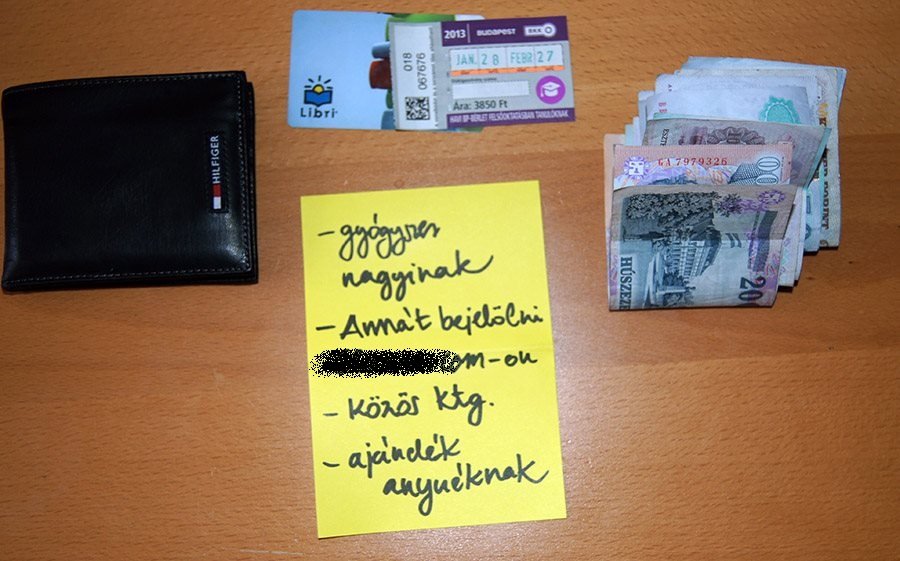 2013 BUDAPEST BKK
JAN. 28 FEBR 27
018
067676
Ára: 3850 Ft
HAVI BP-BÉRLET FELSŐOKTATÁSBAN TANULÓKNAK
Libri
HILFIGER
GA 7979326
HÚSZEZ
200
- gyógyszer
nagyinak
- Annát bejelölni
om-on
- Közös ktg.
- ajándék
anyuéknak